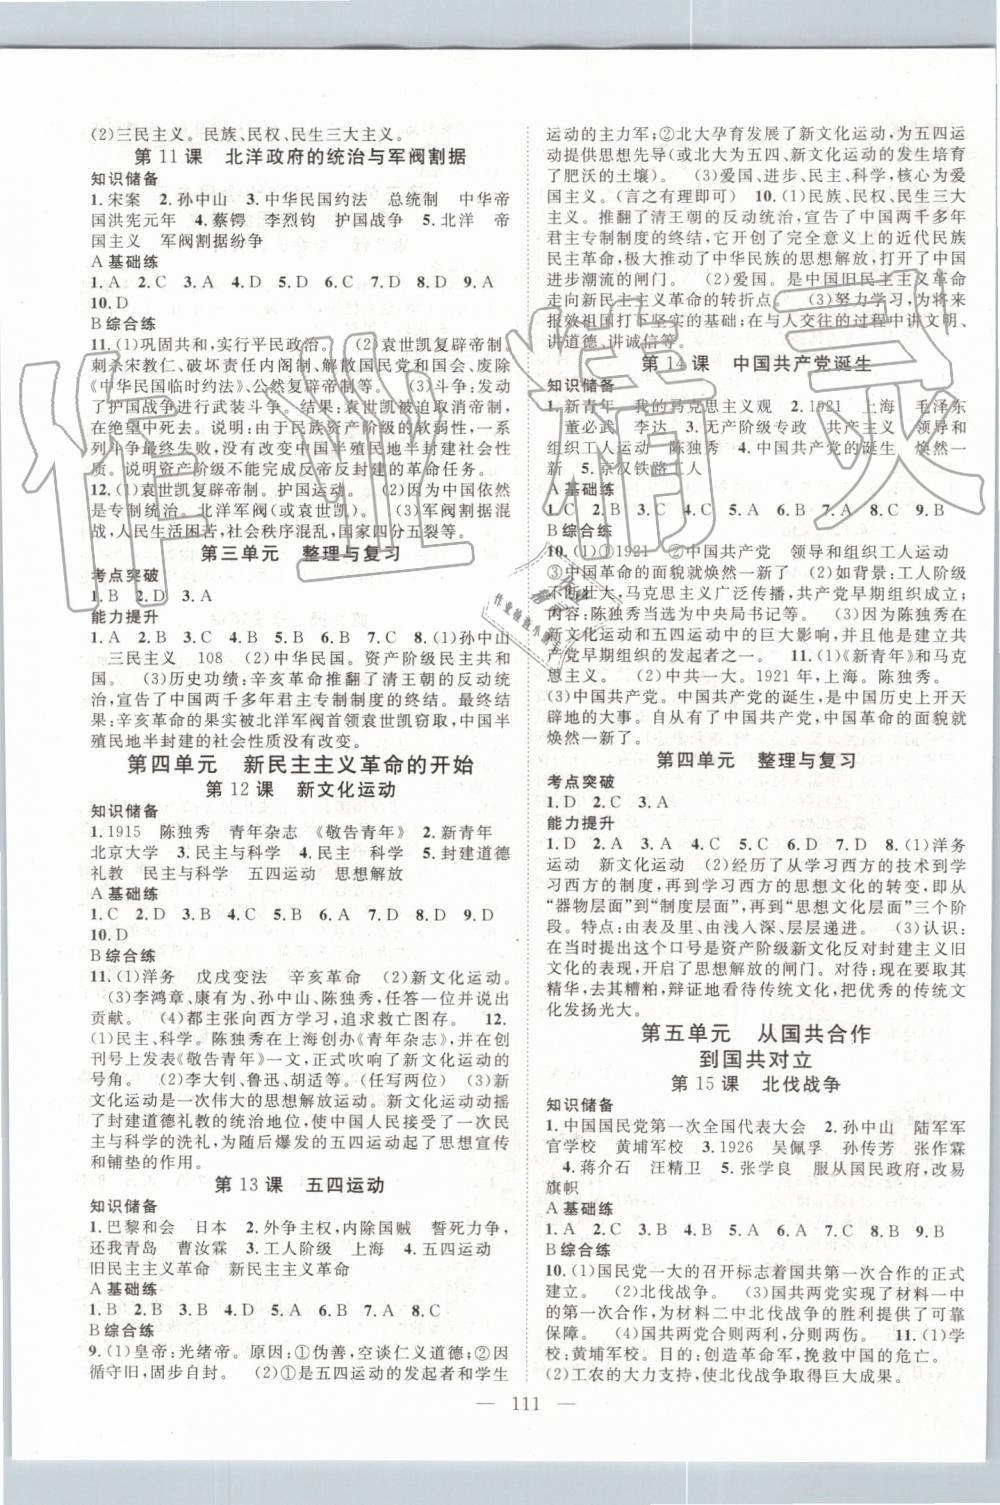 (2)三民主义。民族、民权、民生三大主义。
第11课 北洋政府的统治与军阀割据
知识储备
1.宋案 2.孙中山 3.中华民国约法 总统制 中华帝
国洪宪元年 4.蔡锷 李烈钧 护国战争 5.北洋 帝
国主义 军阀割据纷争
A 基础练
1.A 2.C 3.A 4.D 5.D 6.C 7.D 8.C 9.A
10.D
B 综合练
11.(1)巩固共和,实行平民政治。(2)袁世凯复辟帝制。
刺杀宋教仁、破坏责任内阁制、解散国民党和国会、废除
《中华民国临时约法》、公然复辟帝制等。(3)斗争:发动
了护国战争进行武装斗争。结果:袁世凯被迫取消帝制,
在绝望中死去。说明:由于民族资产阶级的软弱性,一系
列斗争最终失败,没有改变中国半殖民地半封建社会性
质。说明资产阶级不能完成反帝反封建的革命任务。
12.(1)袁世凯复辟帝制。护国运动。(2)因为中国依然
是专制统治。北洋军阀(或袁世凯)。(3)军阀割据混
战,人民生活困苦,社会秩序混乱,国家四分五裂等。
第三单元 整理与复习
考点突破
1.B 2.D 3.A
能力提升
1.A 2.D 3.B 4.C 5.B 6.C 7.C 8.(1)孙中山
三民主义 108 (2)中华民国。资产阶级民主共和
国。 (3)历史功绩:辛亥革命推翻了清王朝的反动统
治,宣告了中国两千多年君主专制制度的终结。最终结
果:辛亥革命的果实被北洋军阀首领袁世凯窃取,中国半
殖民地半封建的社会性质没有改变。
第四单元 新民主主义革命的开始
第12课 新文化运动
知识储备
1.1915 陈独秀 青年杂志 《敬告青年》 2.新青年
北京大学 3.民主与科学 4.民主 科学 5.封建道德
礼教 民主与科学 五四运动 思想解放
A 基础练
1.C 2.D 3.D 4.A 5.B 6.A 7.C 8.C 9.D
10.D
B 综合练
11.(1)洋务 戊戌变法 辛亥革命 (2)新文化运动。
(3)李鸿章、康有为、孙中山、陈独秀,任答一位并说出
贡献。(4)都主张向西方学习,追求救亡图存。 12.
(1)民主、科学。陈独秀在上海创办《青年杂志》,并在创
刊号上发表《敬告青年》一文,正式吹响了新文化运动的
号角。(2)李大钊、鲁迅、胡适等。(任写两位) (3)新
文化运动是一次伟大的思想解放运动。新文化运动动摇
了封建道德礼教的统治地位,使中国人民接受了一次民
主与科学的洗礼,为随后爆发的五四运动起了思想宣传
和铺垫的作用。
第13课 五四运动
知识储备
1.巴黎和会 日本 2.外争主权,内除国贼 誓死力争,
还我青岛 曹汝霖 3.工人阶级 上海 4.五四运动
旧民主主义革命 新民主主义革命
A 基础练
1.B 2.B 3.D 4.D 5.A 6.B 7.A 8.C
B 综合练
9.(1)皇帝:光绪帝。原因:①伪善,空谈仁义道德;②因
循守旧,固步自封。 (2)①是五四运动的发起者和学生
运动的主力军;②北大孕育发展了新文化运动,为五四运
动提供思想先导(或北大为五四、新文化运动的发生培
育了肥沃的土壤)。(3)爱国、进步、民主、科学,核心为爱
国主义。(言之有理即可) 10.(1)民族、民权、民生三大
主义。推翻了清王朝的反动统治,宣告了中国两千多年
君主专制制度的终结,它开创了完全意义上的近代民族
民主革命,极大推动了中华民族的思想解放,打开了中国
进步潮流的闸门。(2)爱国。是中国旧民主主义革命
走向新民主主义革命的转折点。(3)努力学习,为将来
报效祖国打下坚实的基础;在与人交往的过程中讲文明、
讲道德、讲诚信等。
第14课 中国共产党诞生
知识储备
1.新青年 我的马克思主义观 2.1921 上海 毛泽东
董必武 李达 3.无产阶级专政 共产主义 领导和
组织工人运动 陈独秀 4.中国共产党的诞生 焕然一
新 5.京汉铁路工人
A 基础练
1.C 2.B 3.D 4.C 5.D 6.A 7.C 8.C 9.B
B 综合练
10.(1)①1921 ②中国共产党 领导和组织工人运动
③中国革命的面貌就焕然一新了 (2)如背景:工人阶级
不断壮大、马克思主义广泛传播,共产党早期组织的建立。
内容:陈独秀当选为中央局书记等。 (3)因为陈独秀在
新文化运动和五四运动中的巨大影响,并且他是中国共
产党早期组织的发起者之一。 11.(1)《新青年》与马克
思主义。(2)中共一大。1921年,上海。陈独秀。
(3)中国共产党。中国共产党的诞生,是中国历史上开天
辟地的大事。自从有了中国共产党,中国革命的面貌就
焕然一新了。
第四单元 整理与复习
考点突破
1.D 2.C 3.A
能力提升
1.D 2.A 3.B 4.C 5.B 6.D 7.D 8.(1)洋务
运动 新文化运动 (2)经历了从学习西方的技术到学
习西方的制度,再到学习西方的思想文化的转变,即从
“器物层面”到“制度层面”,再到“思想文化层面”三个阶
段。特点:由表及里、由浅入深、层层递进。(3)认识:
在当时提出这个口号是资产阶级新文化反对封建主义旧
文化的表现,开启了思想解放的闸门。对待:现在要取其
精华,去其糟粕,辩证地看待传统文化,把优秀的传统文
化发扬光大。
第五单元 从国共合作
到国共对立
第15课 北伐战争
知识储备
1.中国国民党第一次全国代表大会 2.孙中山 陆军军
官学校 黄埔军校 3.1926 吴佩孚 孙传芳 张作霖
4.蒋介石 汪精卫 5.张学良 服从国民政府,改易
旗帜
A 基础练
1.A 2.C 3.B 4.B 5.C 6.A 7.D 8.B 9.C
B 综合练
10.(1)国民党一大的召开标志着国共第一次合作的正式
建立。(2)北伐战争。(3)国共两党实现了材料一中
的第一次合作,为材料二中北伐战争的胜利提供了可靠
保障。(4)国共两党合则两利,分则两伤。 11.(1)学
校:黄埔军校。目的:创造革命军,挽救中国的危亡。
(2)工农的大力支持,使北伐战争取得巨大成果。
— 111 —
作业精灵